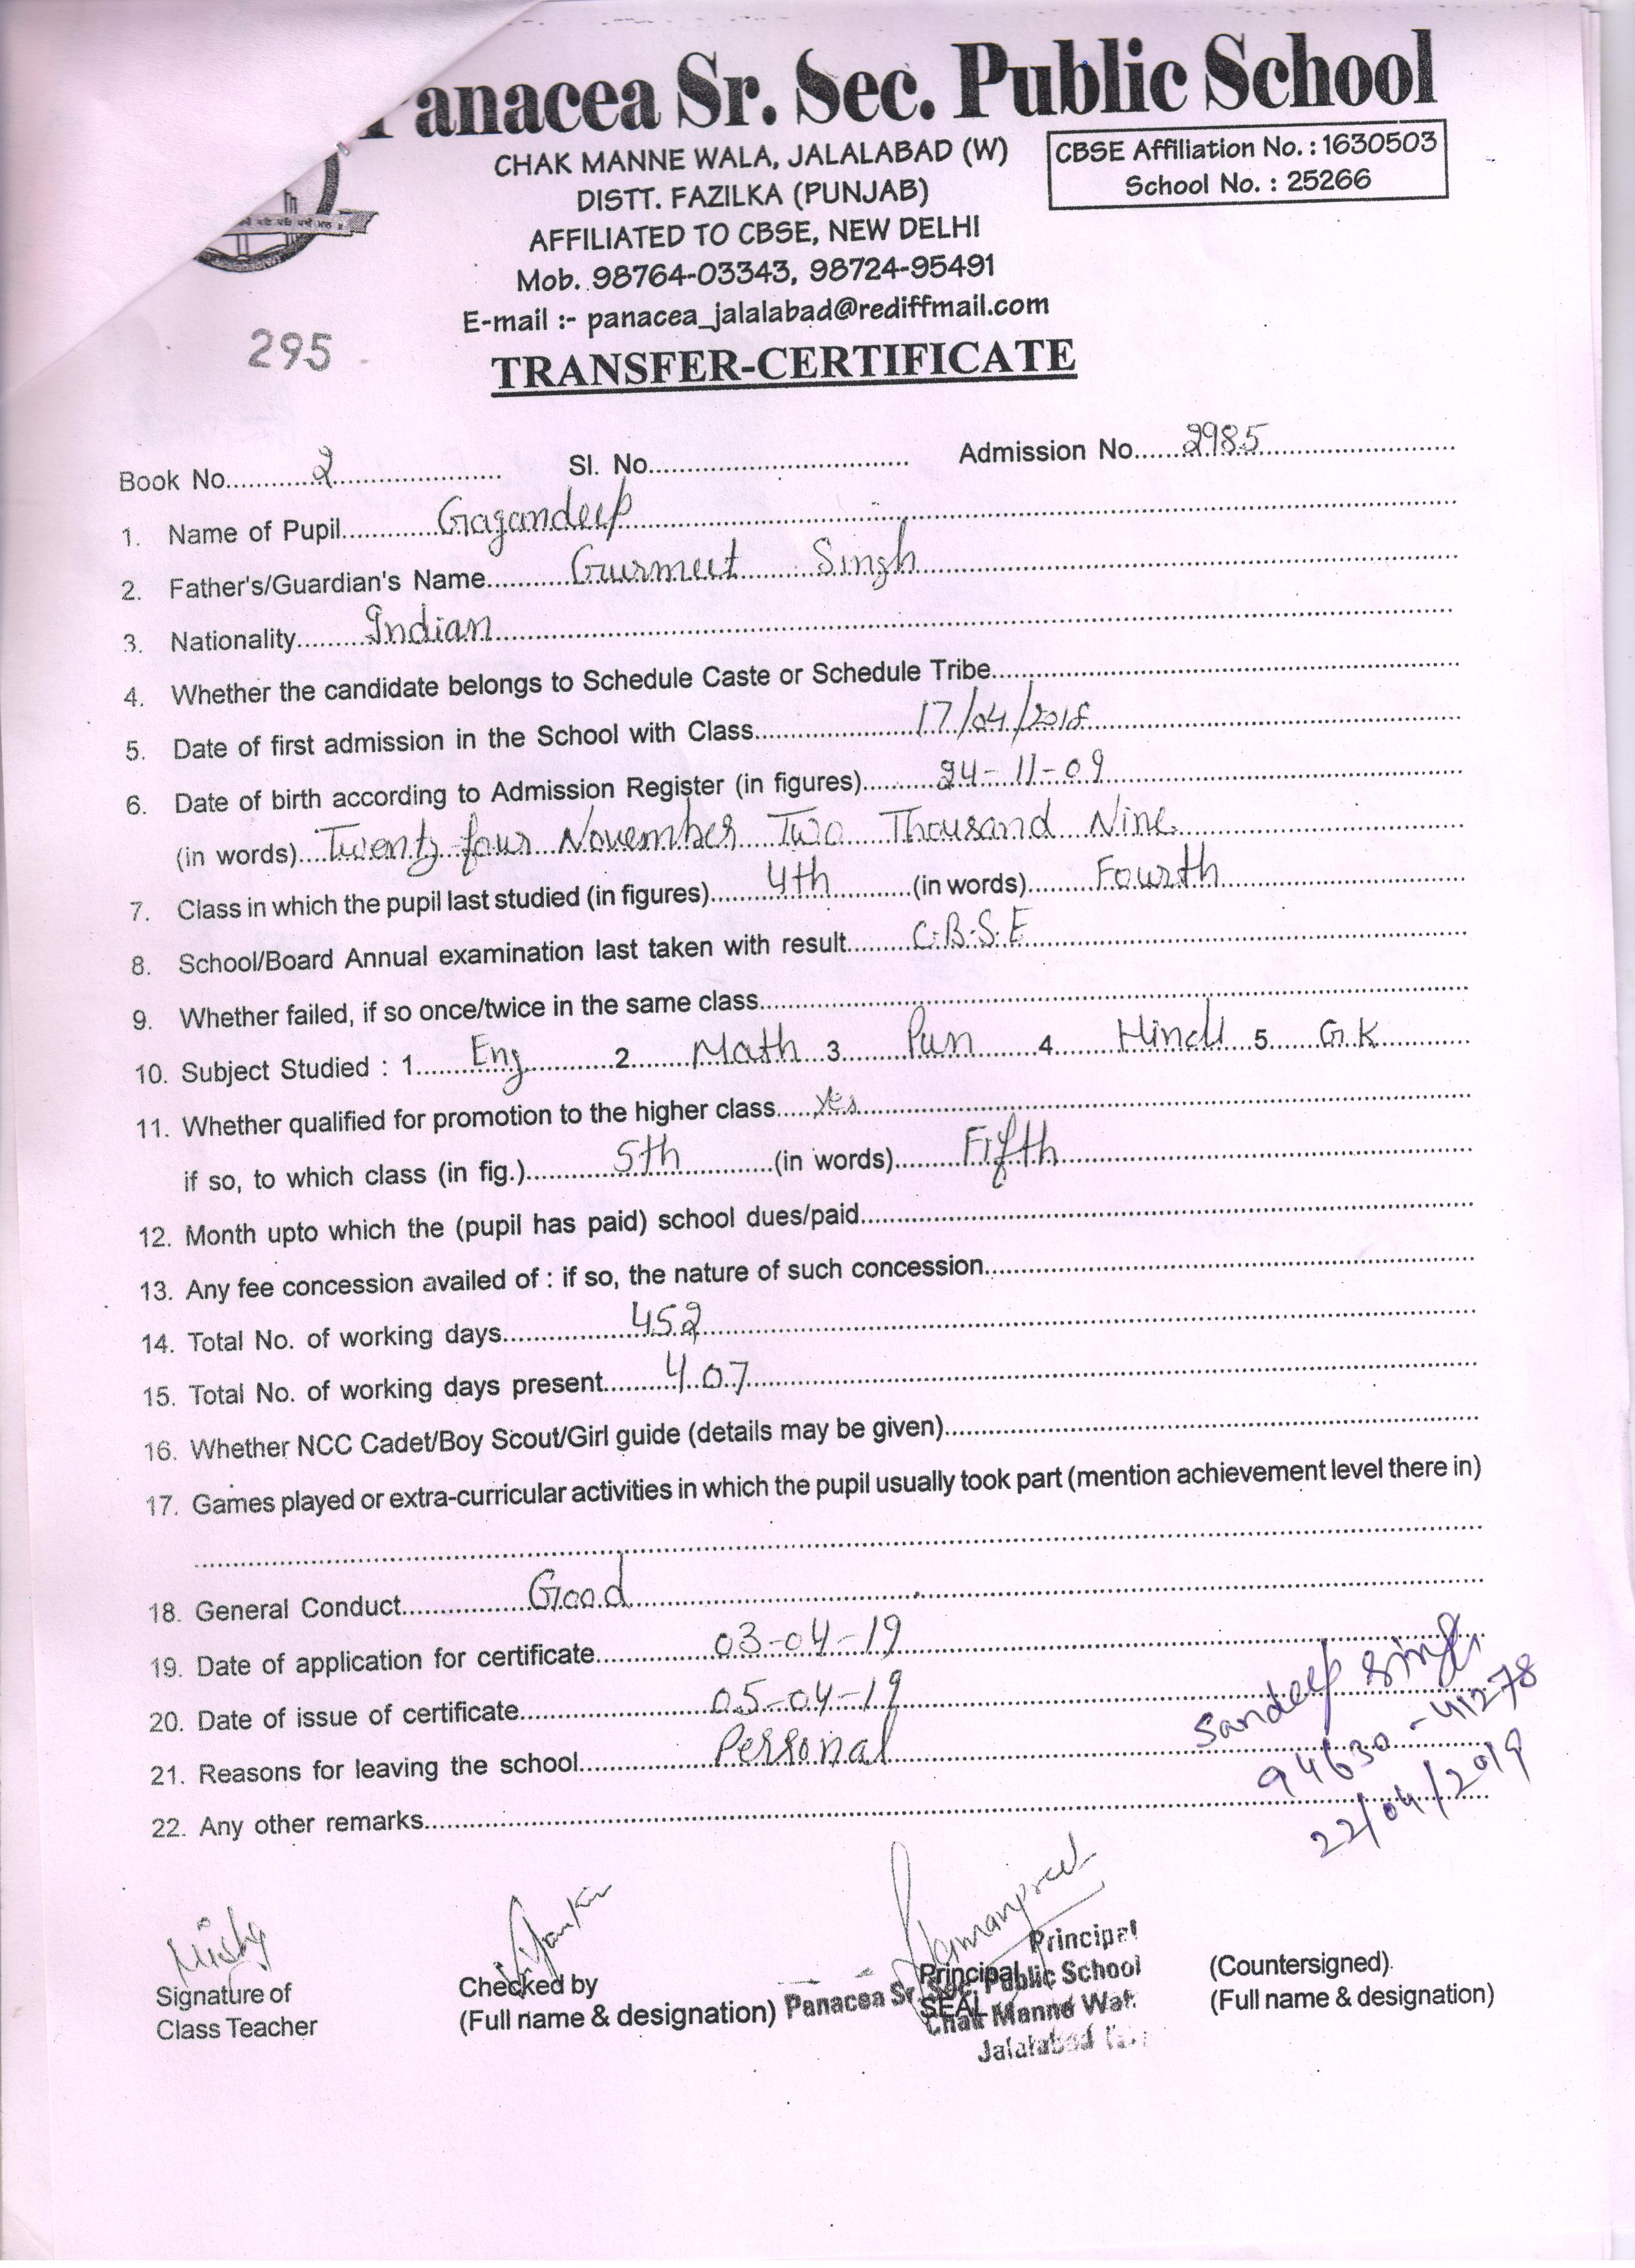 Panacea Sr. Sec. Public School
CHAK MANNE WALA, JALALABAD (W)
CBSE Affiliation No. : 1630503
School No. : 25266
DISTT. FAZILKA (PUNJAB)
AFFILIATED TO CBSE, NEW DELHI
Mob. 98764-03343, 98724-95491
E-mail :- panacea_jalalabad@rediffmail.com
295
TRANSFER-CERTIFICATE
Book No. 2 Sl. No. Admission No. 2985
1. Name of Pupil Gagandeep
2. Father's/Guardian's Name Gurmeet Singh
3. Nationality Indian
4. Whether the candidate belongs to Schedule Caste or Schedule Tribe
5. Date of first admission in the School with Class 17/04/2018
6. Date of birth according to Admission Register (in figures) 24-11-09
(in words) Twenty four November Two Thousand Nine
7. Class in which the pupil last studied (in figures) 4th (in words) Fourth
8. School/Board Annual examination last taken with result C.B.S.E
9. Whether failed, if so once/twice in the same class
10. Subject Studied : 1 Eng 2 Math 3 Pun 4 Hindi 5 G.K
11. Whether qualified for promotion to the higher class Yes
if so, to which class (in fig.) 5th (in words) Fifth
12. Month upto which the (pupil has paid) school dues/paid
13. Any fee concession availed of : if so, the nature of such concession
14. Total No. of working days 452
15. Total No. of working days present 407
16. Whether NCC Cadet/Boy Scout/Girl guide (details may be given)
17. Games played or extra-curricular activities in which the pupil usually took part (mention achievement level there in)
18. General Conduct Good
19. Date of application for certificate 03-04-19
20. Date of issue of certificate 05-04-19
21. Reasons for leaving the school Personal
22. Any other remarks
Sandeep Singh
94630-41278
22/04/2019
Signature of
Class Teacher
Checked by
(Full name & designation)
Principal
SEAL
Principal
Panacea Sr. Sec. Public School
Chak Manne Wala
Jalalabad
(Countersigned)
(Full name & designation)